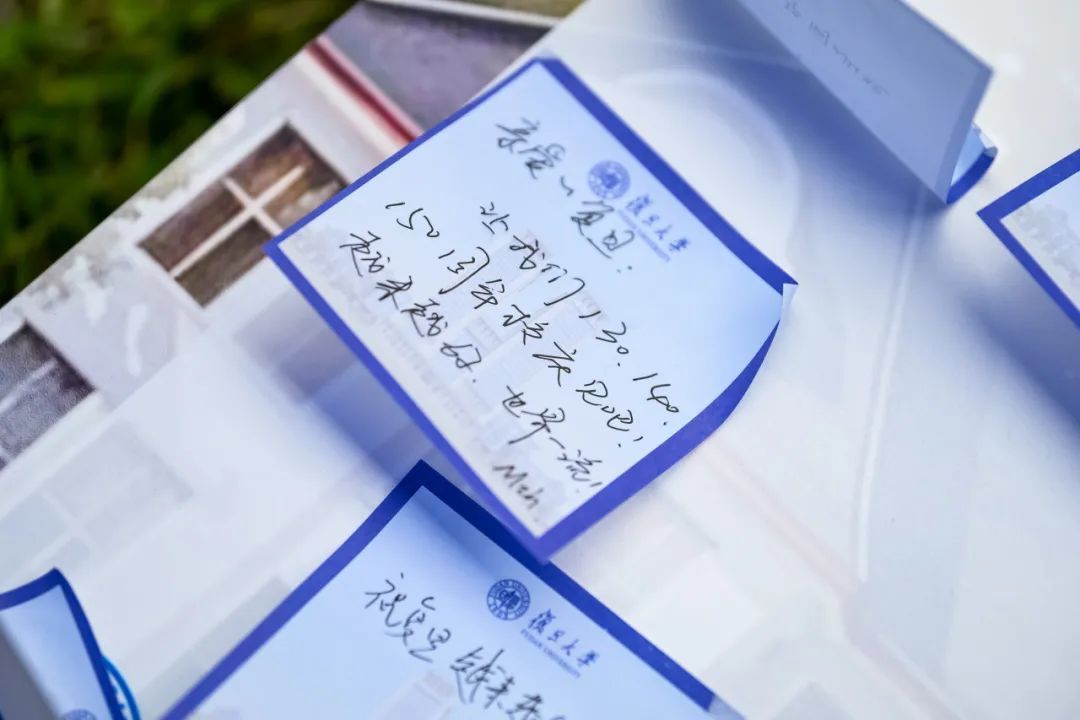 復旦大學
FUDAN UNIVERSITY
亲爱的复旦:
让我们 130. 140.
150 周年校庆见吧!
越来越好. 世界一流!
復旦大學
FUDAN UNIVERSITY
祝复旦越来越